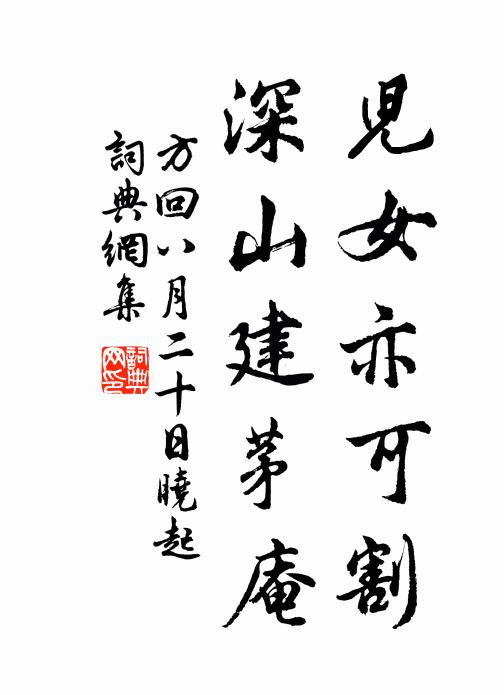 兒女亦可割
深山建茅庵
方回八月二十日曉起
詞典網集
詞典網印